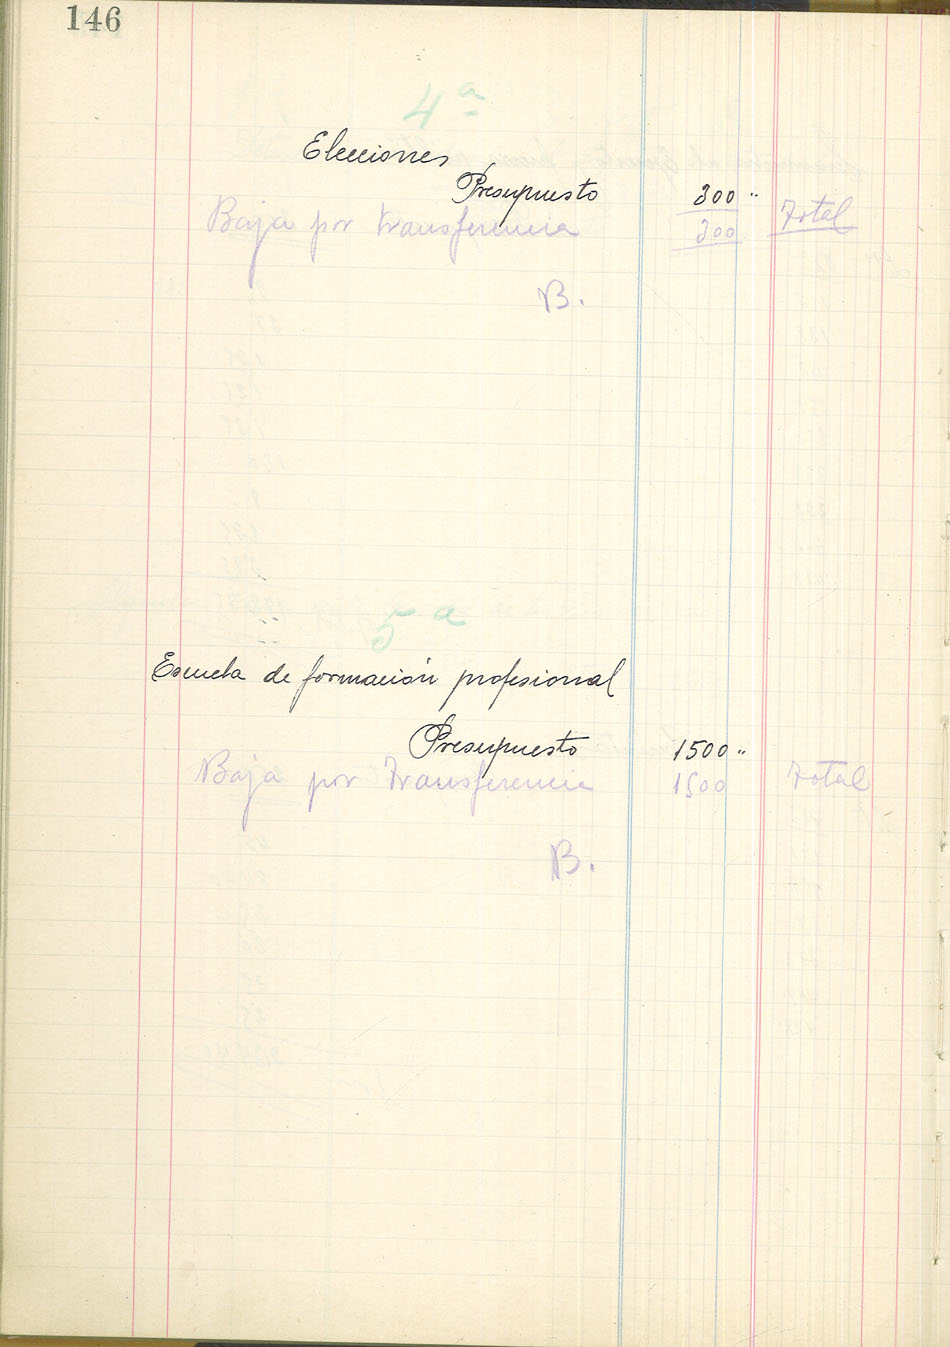 146
4ª
Elecciones
Presupuesto 300 "
Baja por transferencia 300 Total
B.
5ª
Escuela de formación profesional
Presupuesto 1500 "
Baja por Transferencia 1500 Total
B.